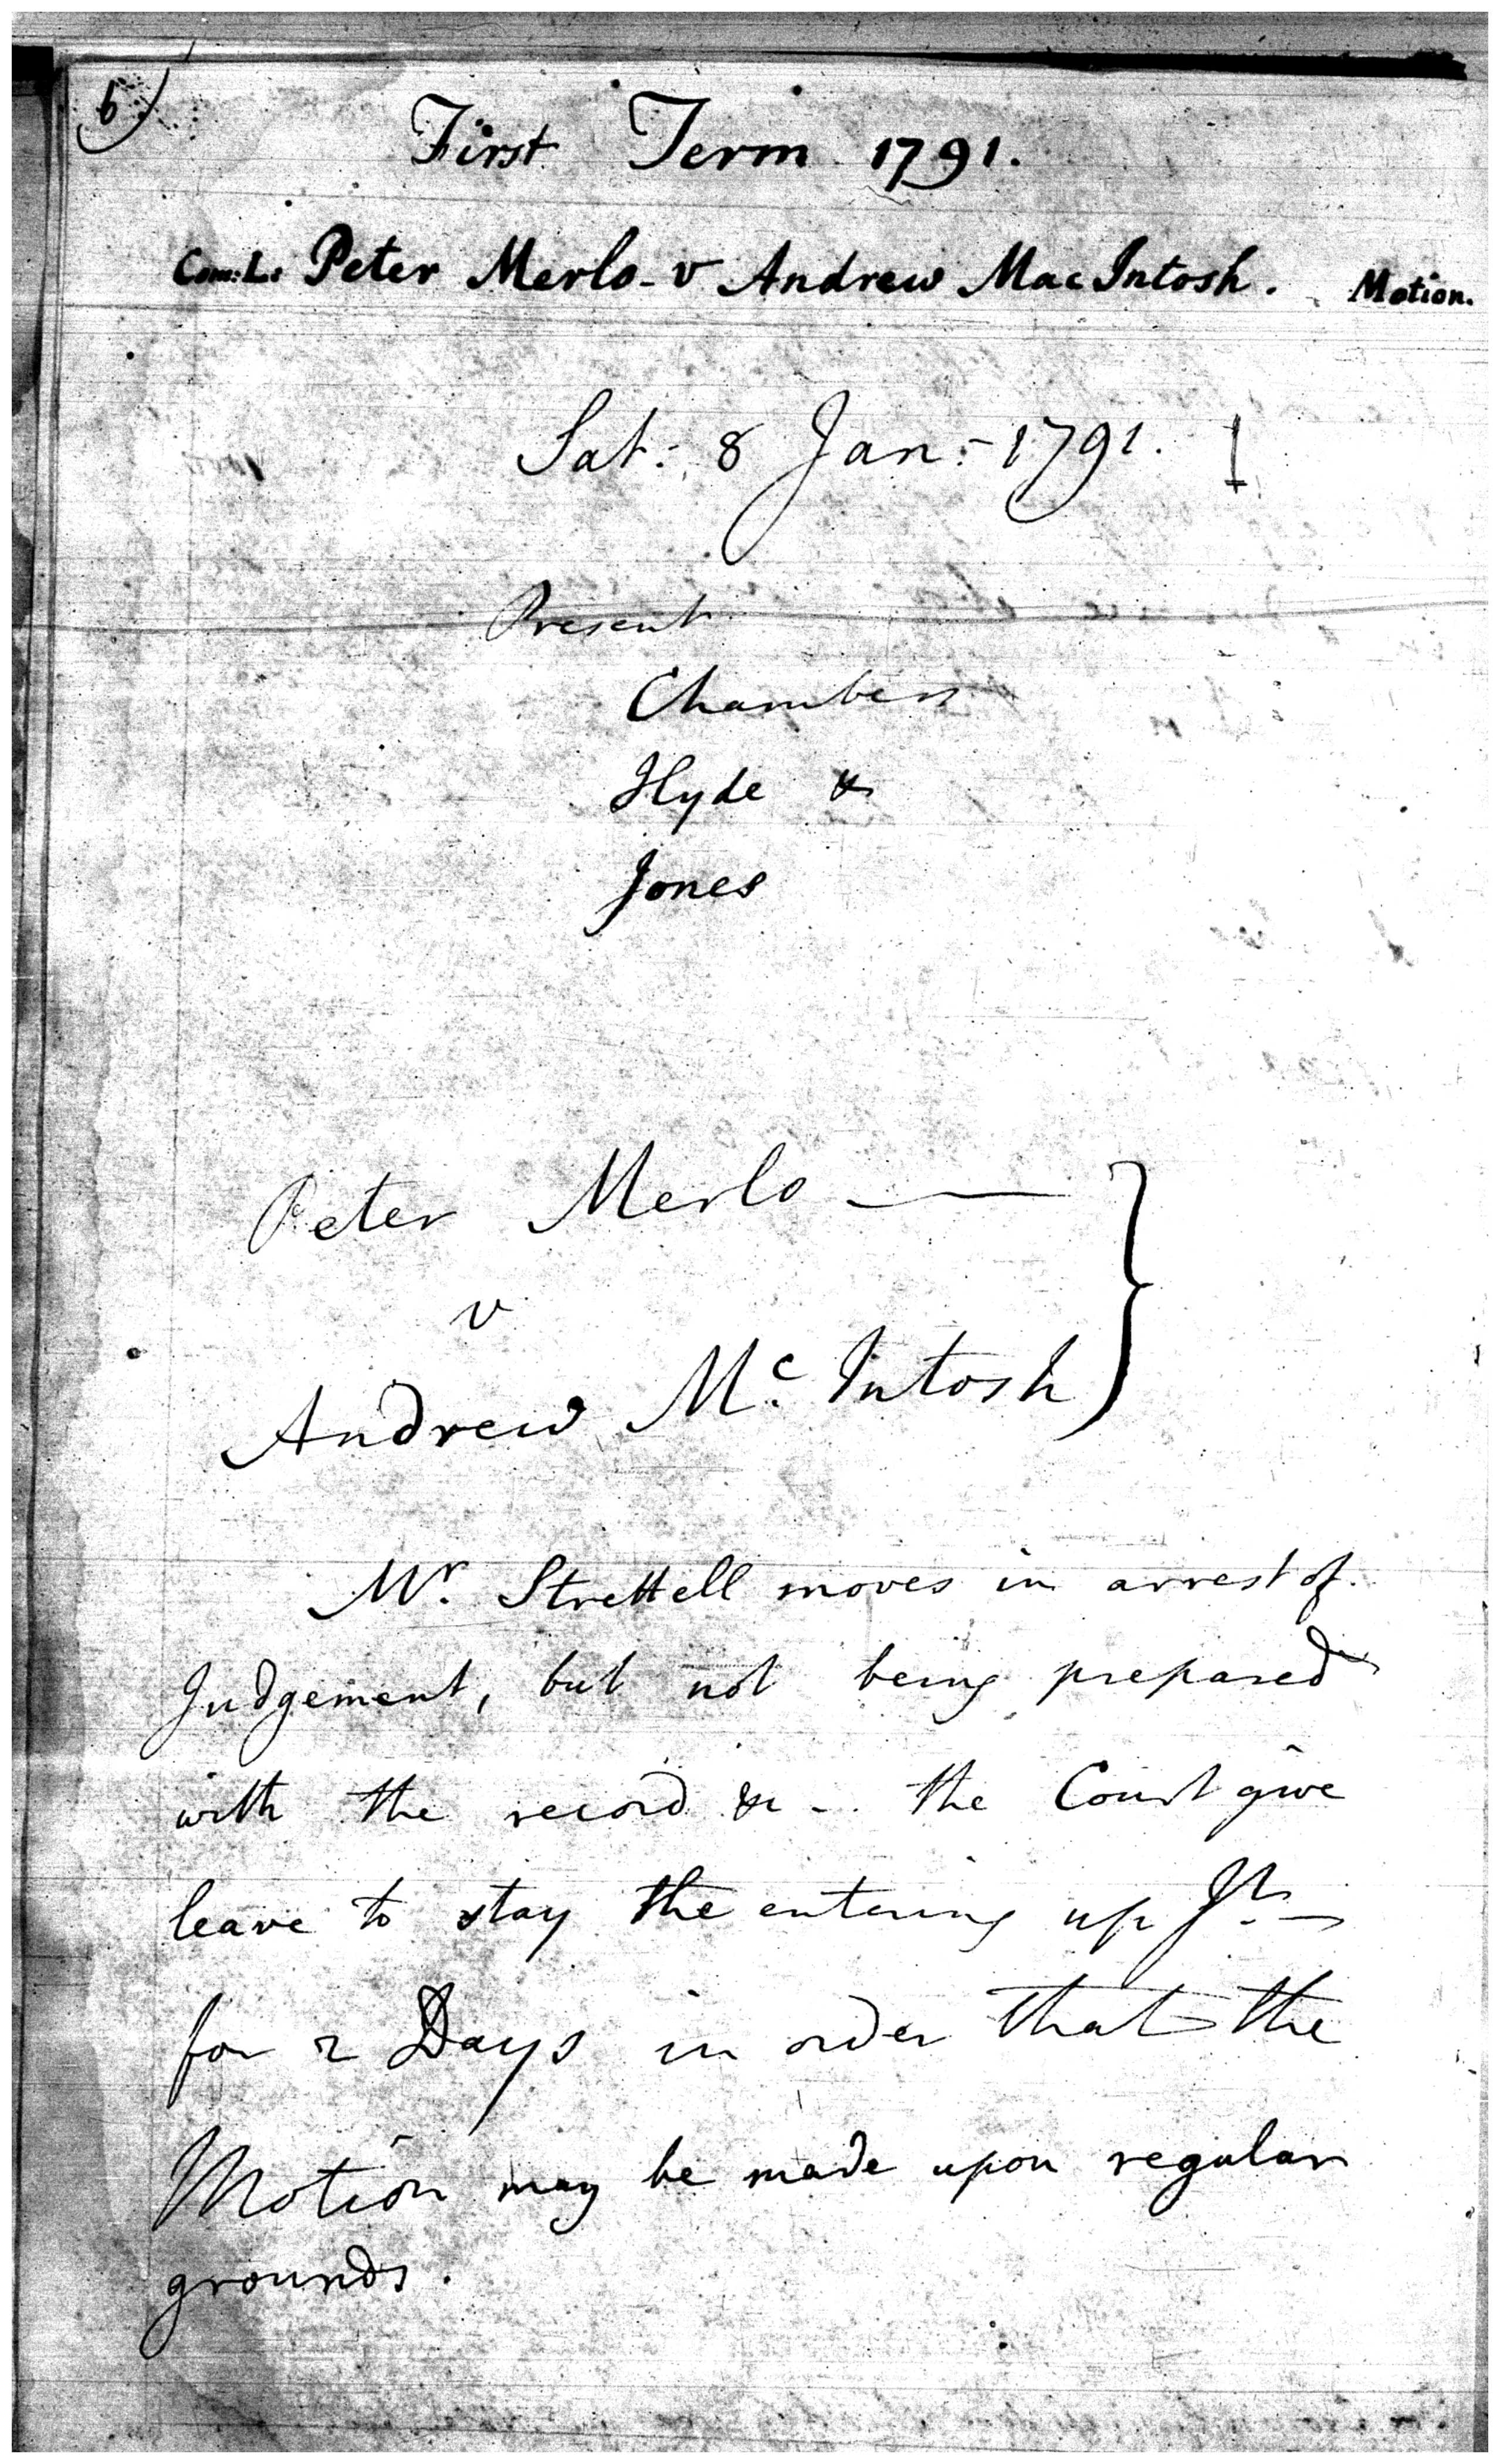 6)
First Term 1791.
Com: L: Peter Merlo - v Andrew MacIntosh. Motion.
Sat: 8 Jan: 1791.
Present
Chambers
Hyde &
Jones
Peter Merlo —
v
Andrew Mc. Intosh
Mr. Strettell moves in arrest of
Judgement, but not being prepared
with the record &c - . the Court give
leave to stay the entering up Jt. —
for 2 Days in order that the
Motion may be made upon regular
grounds.